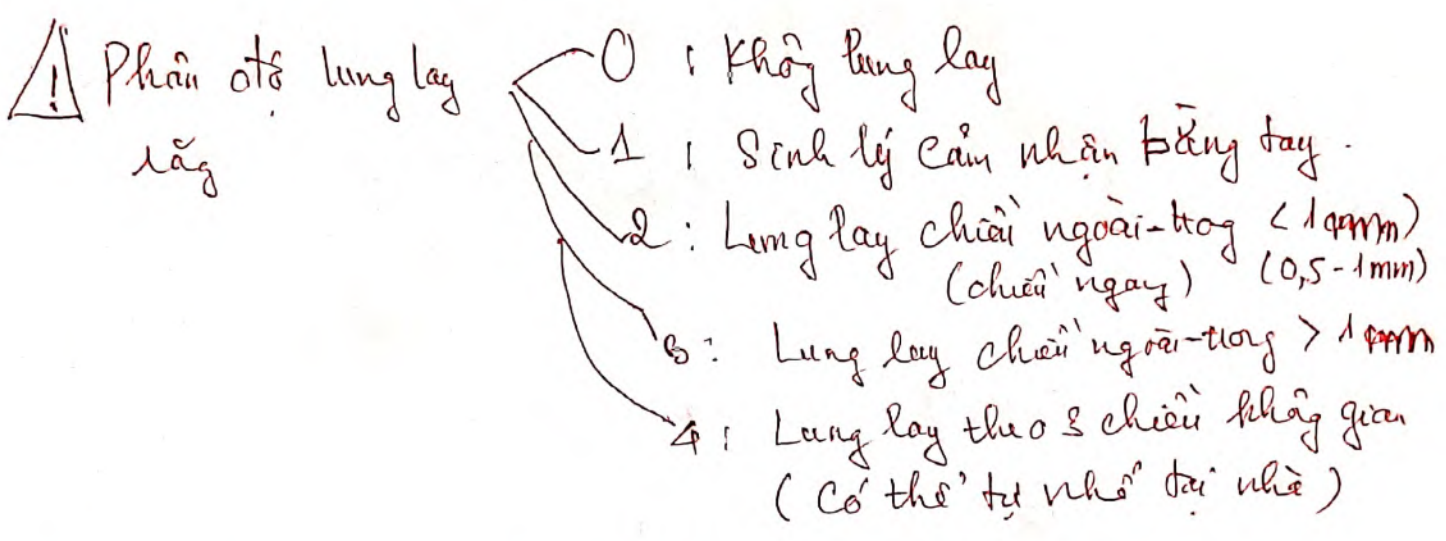 ! Phân độ lung lay răg
0 : Khôg lung lay
1 : Sinh lý cảm nhận bằng tay.
2 : Lung lay chiều ngoài-trog < 1 mm)
(chiều ngang) (0,5 - 1mm)
3 : Lung lay chiều ngoài-trong > 1 mm
4 : Lung lay theo 3 chiều không gian
(Có thể tự nhổ tại nhà)